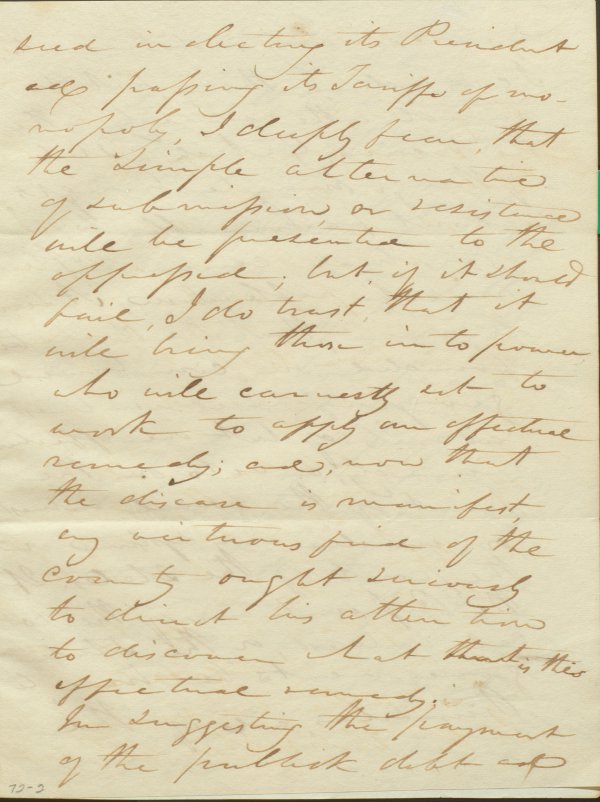 ceed in electing its President
and passing its Tariff of mo-
nopoly, I deeply fear, that
the simple alternative
of submission, or resistance
will be presented to the
oppressed; but, if it should
fail, I do trust, that it
will bring those into power,
who will earnestly set to
work to apply an effectual
remedy; and, now that
the disease is manifest,
any virtuous friend of the
country ought seriously
to direct his attention
to discover what that is this
effectual remedy.
In suggesting the payment
of the publick debt and
72-2